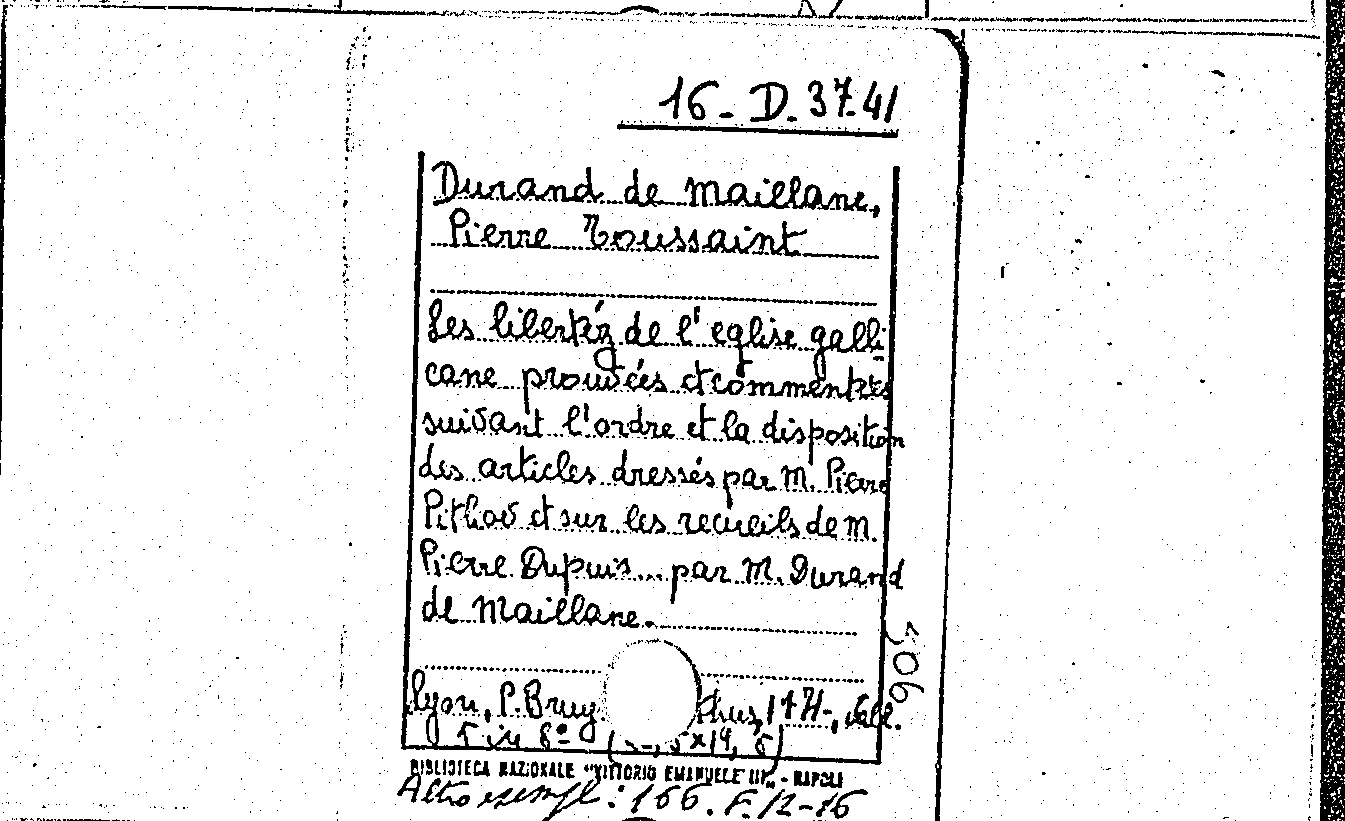 16-D.37-41
Durand de Maillane,
Pierre Toussaint
Les libertéz de l'eglise galli-
cane prouvées et commentées
suivant l'ordre et la disposition
des articles dressés par M. Pierre
Pithov et sur les recueils de M.
Pierre Dupuis... par M. Durand
de Maillane.
Lyon, P. Bruy thus, voll.
5 in 8º
506
BIBLIOTECA NAZIONALE "VITTORIO EMANUELE III" - NAPOLI
Altro esempl: 166. F. 12-16